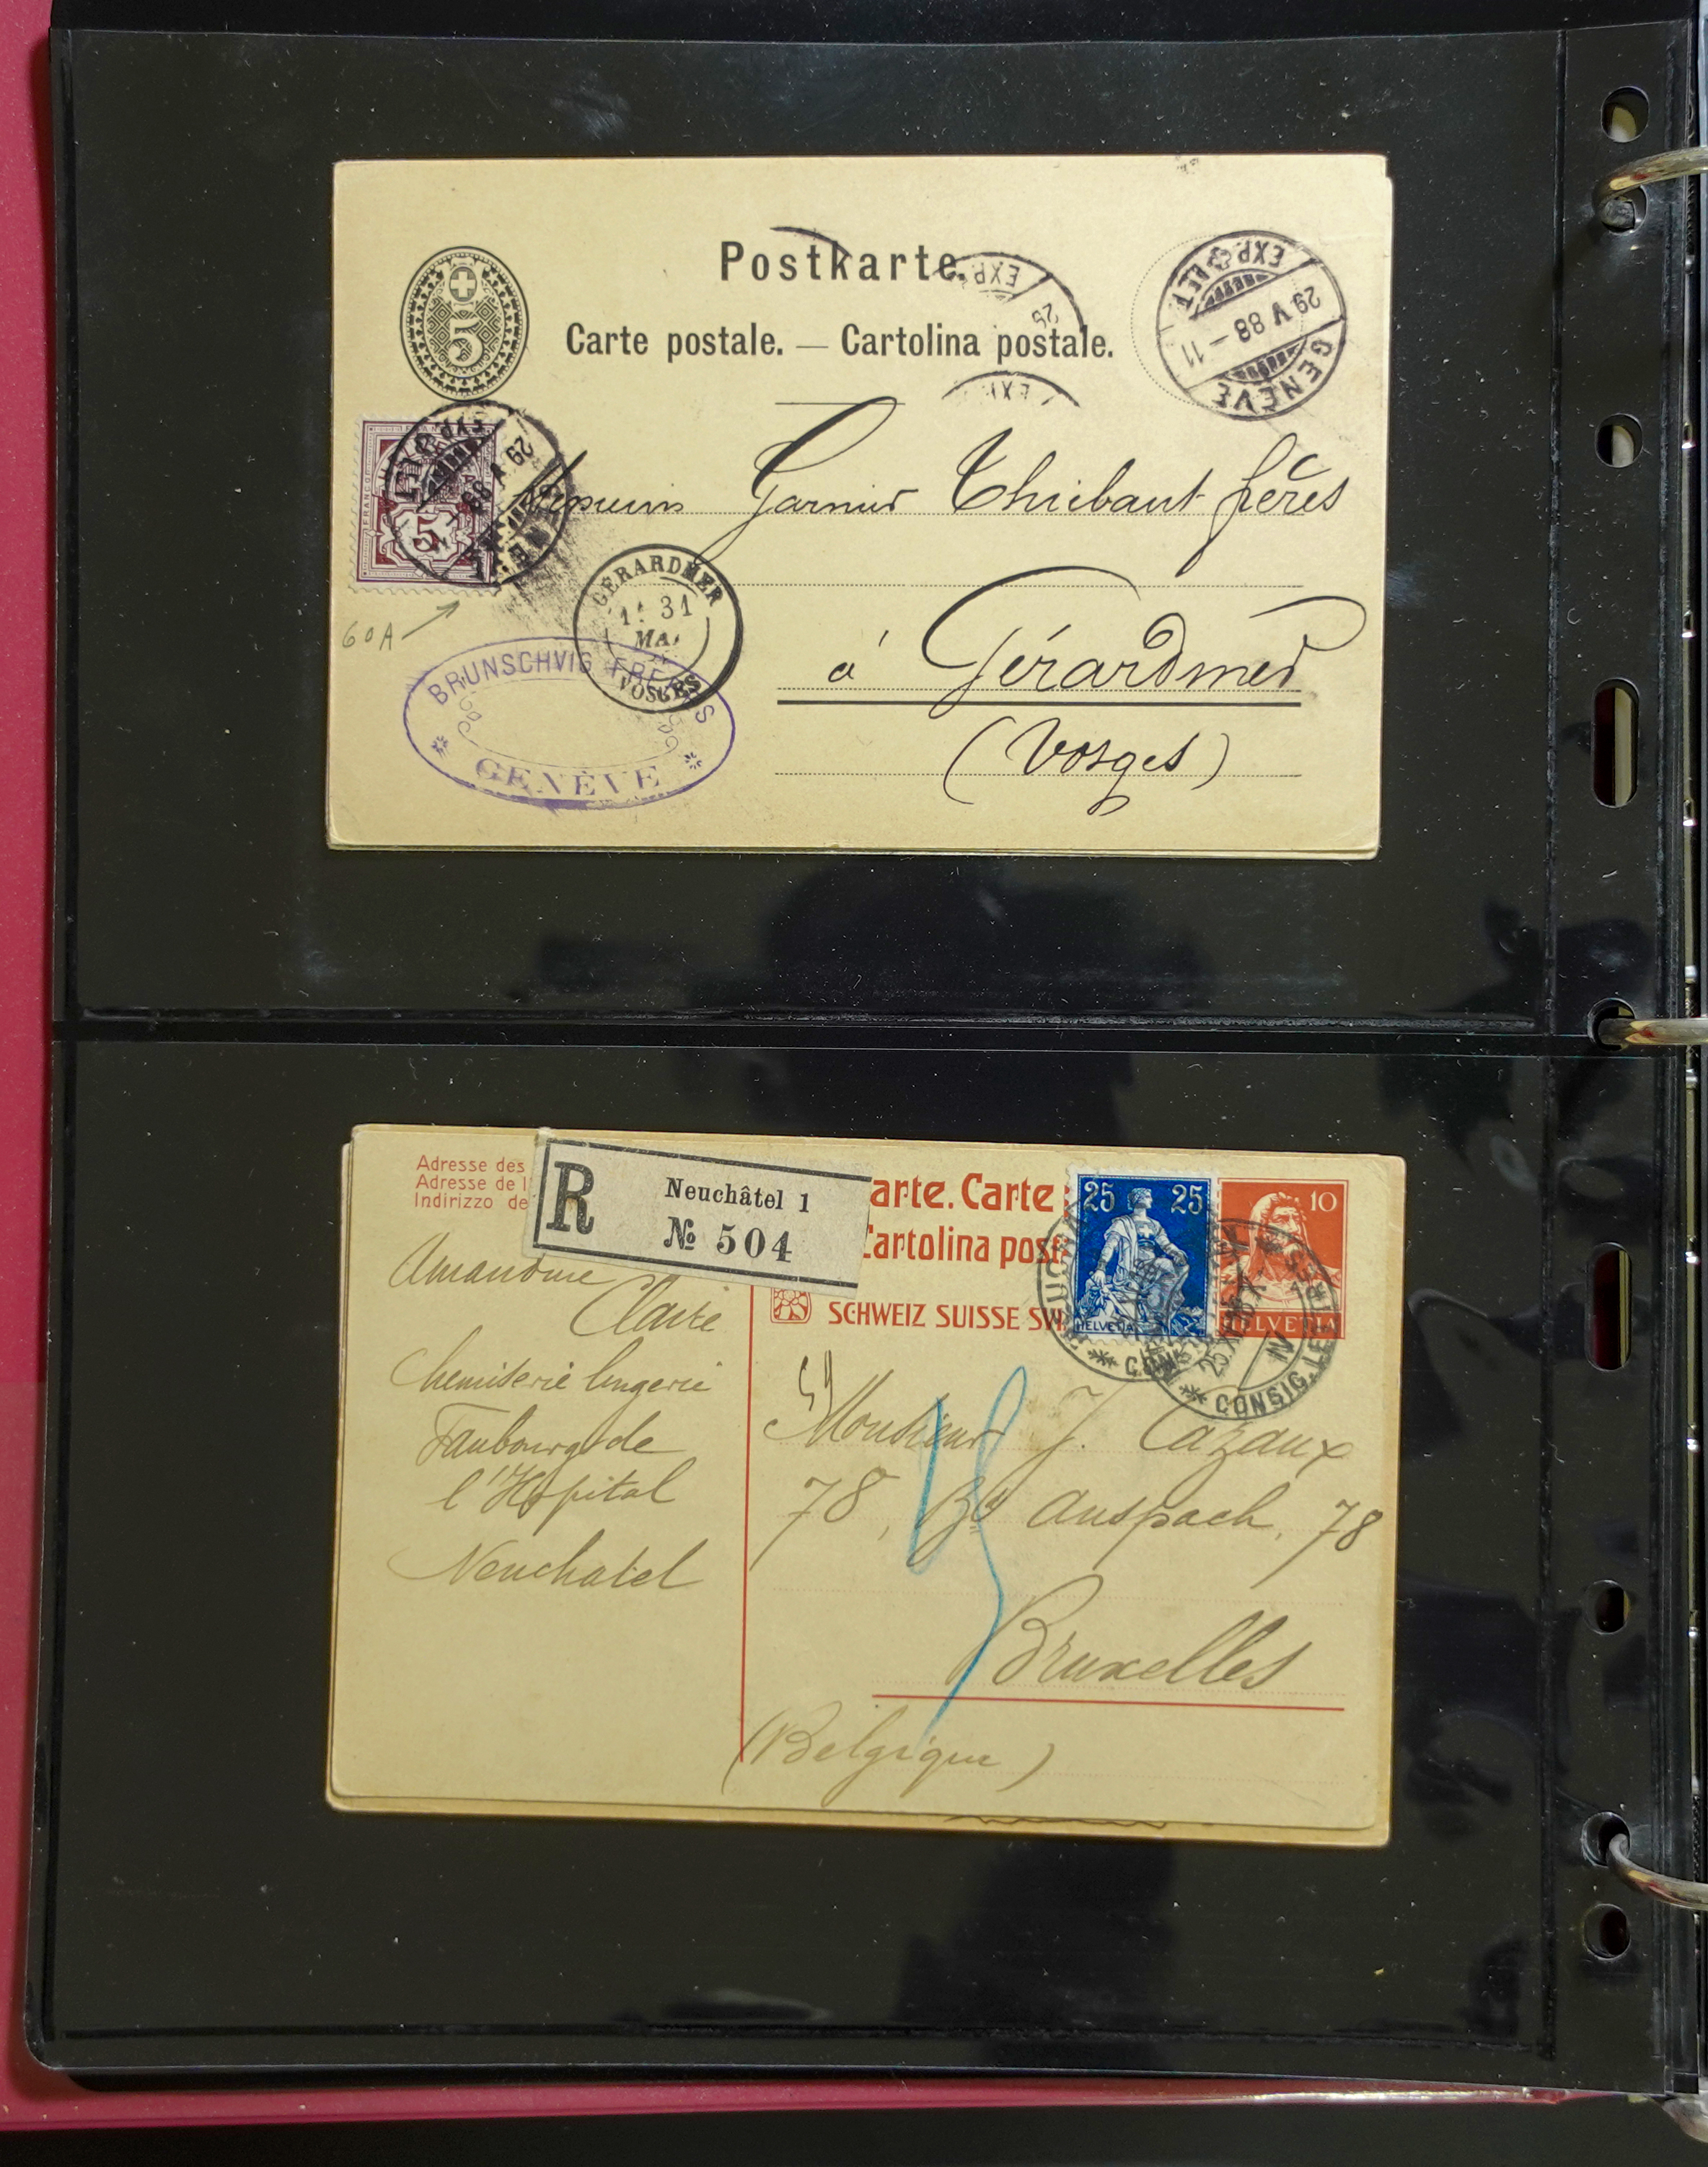 Postkarte.
Carte postale. — Cartolina postale.
5
EXP.
25
EXP.
GENÈVE
29 V 88 – 11
EXP. LET.
FRANCO
5
29 V 88
60A
Messieurs Garnier Thiébaut frères
à Gérardmer
(Vosges)
GÉRARDMER
31
MAI
VOSGES
BRUNSCHVIG FRERES
GENÈVE
Adresse des
Adresse de l
Indirizzo de
R
Neuchâtel 1
№ 504
arte. Carte
Cartolina post
SCHWEIZ SUISSE SV
25 25
HELVETIA
10
HELVETIA
25.X
IV
CONSIG. LETTRES
Amandine
Claire
Chemiserie lingerie
Faubourg de
l'Hopital
Neuchatel
Monsieur J. Cazaux
78, Bd Anspach, 78
Bruxelles
(Belgique)